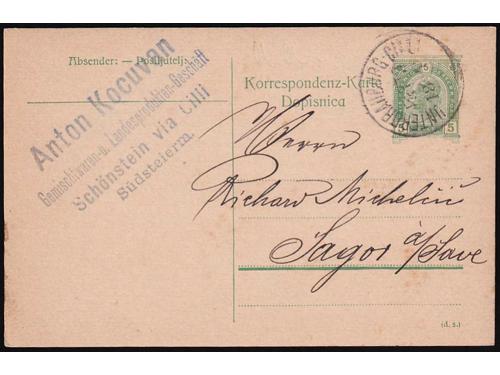 Absender: — Pošiljatelj:
Anton Kocuvan
Gemischtwaren- u. Landesprodukten-Geschäft
Schönstein via Cilli
Südsteierm.
Korrespondenz-Karte
Dopisnica
5
5
UNTERDRAUBURG-CILLI
Herrn
Richard Michelčič
Sagor a/Save
(d. s.)